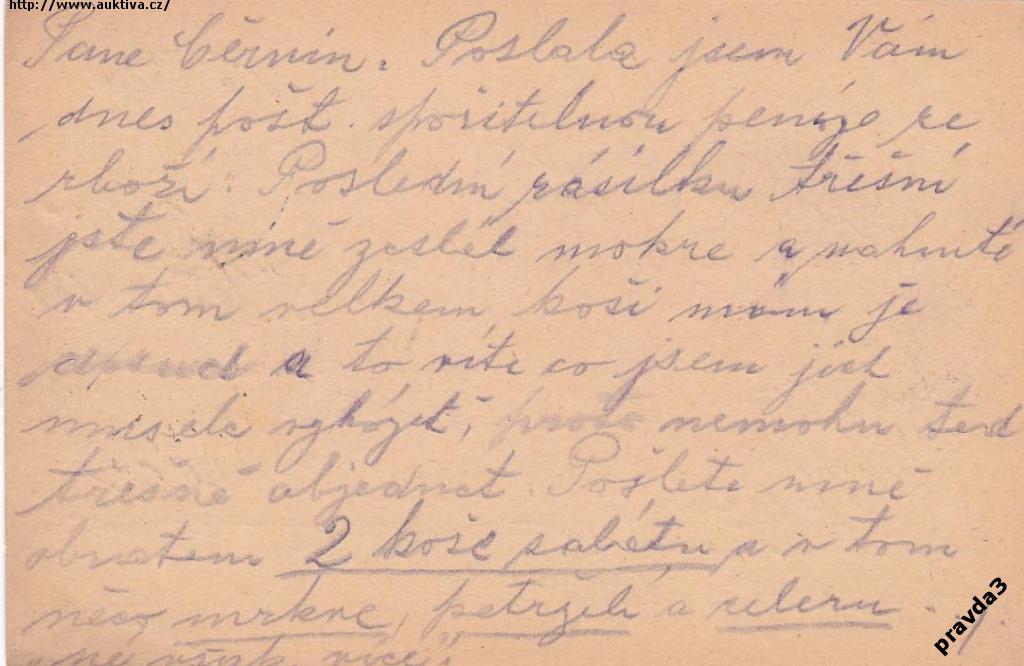 http://www.auktiva.cz/
Pane Černín. Poslala jsem Vám
dnes pošt. spořitelnou peníze ze
zboží. Poslední zásilku třešní
jste mně zeslal mokre a nahnité
v tom velkem koši mám je
dosud a to víte co jsem jich
musela vyházet, proto nemohu teď
třešně objednat. Pošlete mně
obratem 2 koše salátu a v tom
něco mrkve, petrželi a celeru.
ne však více
pravda3